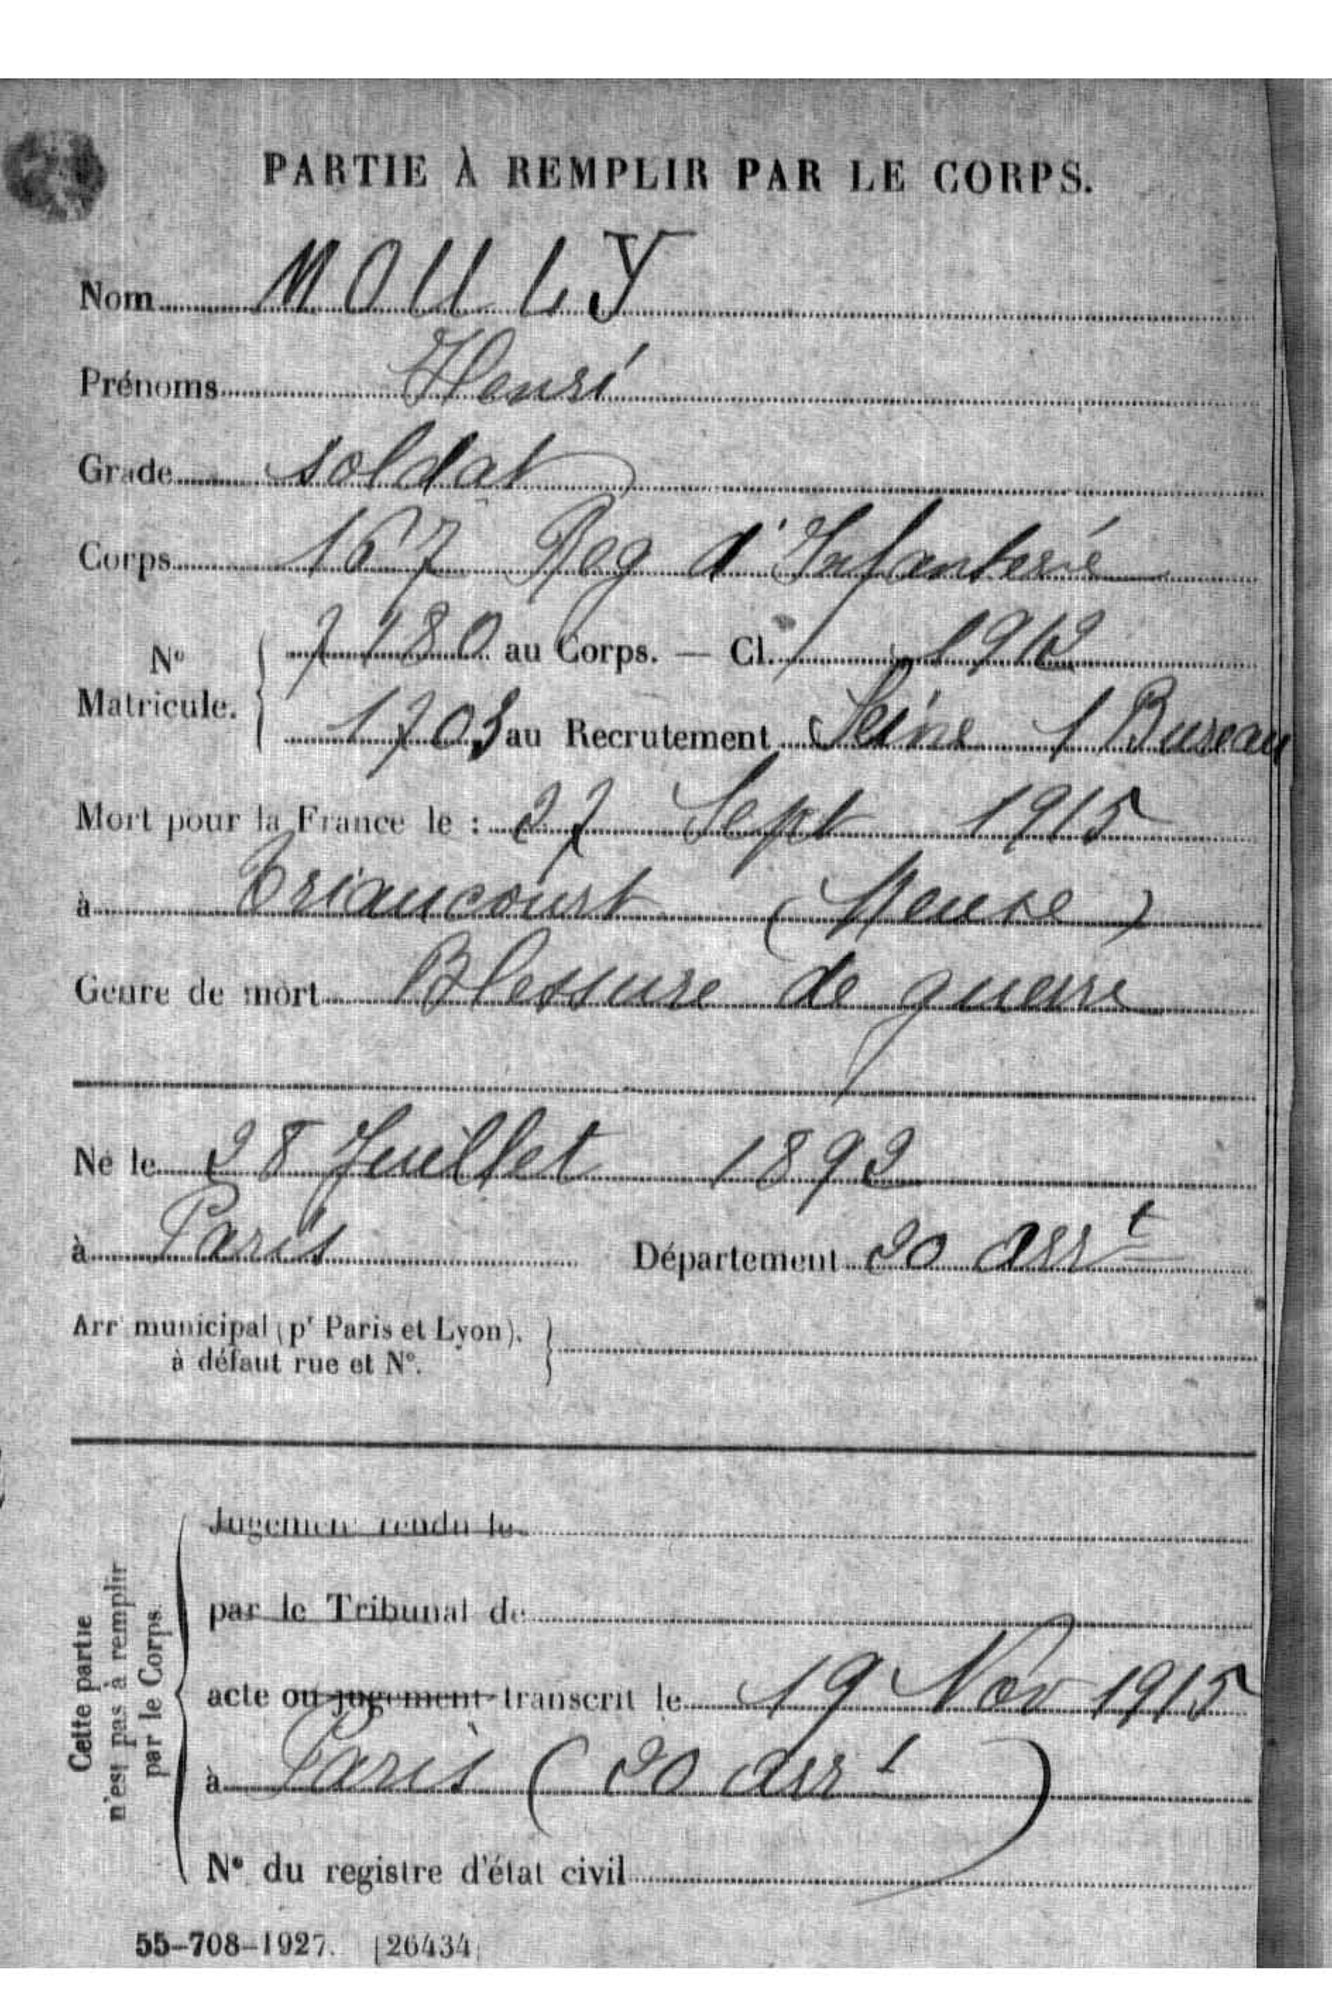 PARTIE À REMPLIR PAR LE CORPS.
Nom MOULY
Prénoms Henri
Grade soldat
Corps 167 Reg d'Infanterie
N° Matricule. 7180 au Corps. — Cl. 1912
1703 au Recrutement Seine 1 Bureau
Mort pour la France le : 27 Sept 1915
à Triaucourt (Meuse)
Genre de mort Blessure de guerre
Né le 28 Juillet 1892
à Paris Département 20 arrt
Arrt municipal (pr Paris et Lyon),
à défaut rue et N°.
Cette partie
n'est pas à remplir
par le Corps.
Jugement rendu le
par le Tribunal de
acte ou jugement transcrit le 19 Nov 1915
à Paris (20 arrt)
N° du registre d'état civil
55-708-1927. [26434]